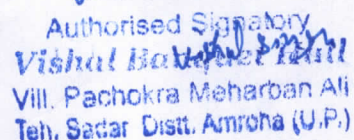 Authorised Signatory
Vishal Banquet Hall
Vill. Pachokra Meharban Ali
Teh. Sadar Distt. Amroha (U.P.)